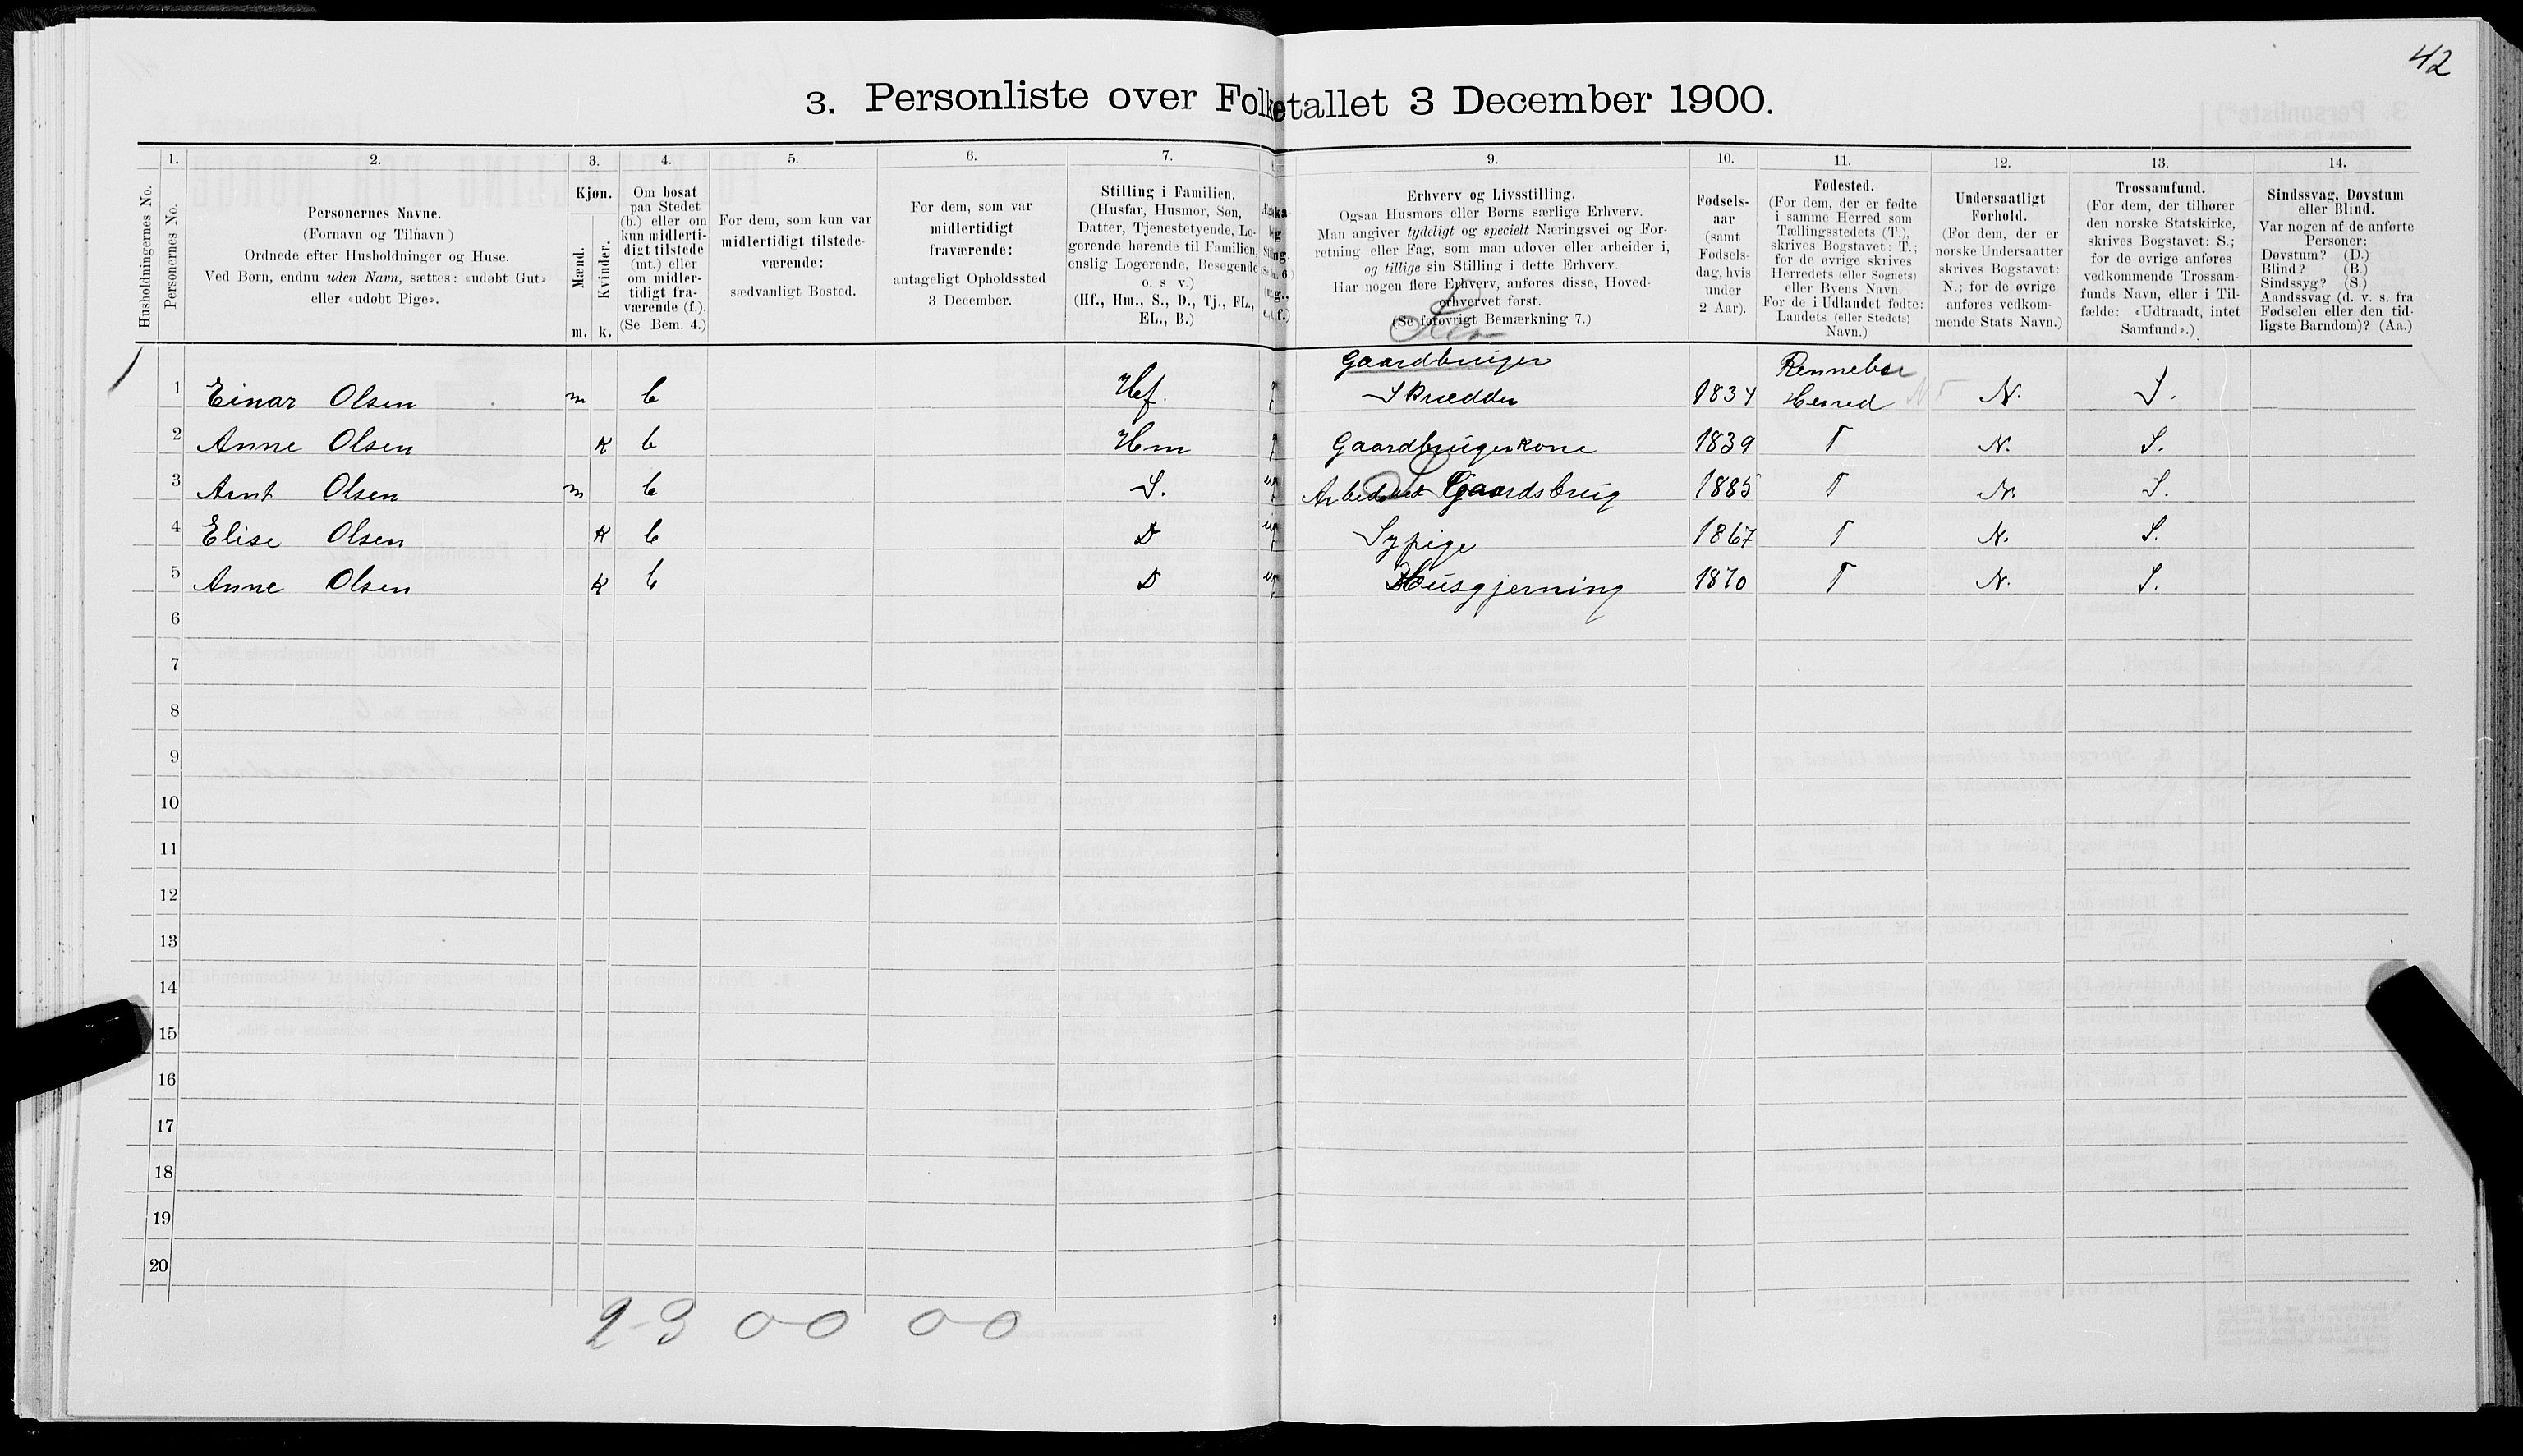 42
3. Personliste over Folketallet 3 December 1900.
1. 2. 3. 4. 5. 6. 7. 9. 10. 11. 12. 13. 14.
Husholdningernes No.
Personernes No.
Personernes Navne.
(Fornavn og Tilnavn)
Ordnede efter Husholdninger og Huse.
Ved Børn, endnu uden Navn, sættes: «udøbt Gut»
eller «udøbt Pige».
Kjøn.
Mænd.
Kvinder.
m. k.
Om bosat
paa Stedet
(b.) eller om
kun midlerti-
digt tilstede
(mt.) eller
om midler-
tidigt fra-
værende (f.).
(Se Bem. 4.)
For dem, som kun var
midlertidigt tilstede-
værende:
sædvanligt Bosted.
For dem, som var
midlertidigt
fraværende:
antageligt Opholdssted
3 December.
Stilling i Familien.
(Husfar, Husmor, Søn,
Datter, Tjenestetyende, Lo-
gerende hørende til Familien,
enslig Logerende, Besøgende
o. s v.)
(Hf., Hm., S., D., Tj., FL.,
EL., B.)
Erhverv og Livsstilling.
Ogsaa Husmors eller Børns særlige Erhverv.
Man angiver tydeligt og specielt Næringsvei og For-
retning eller Fag, som man udøver eller arbeider i,
og tillige sin Stilling i dette Erhverv.
Har nogen flere Erhverv, anføres disse, Hoved-
erhvervet først.
(Se forøvrigt Bemærkning 7.)
Fødsels-
aar
(samt
Fødsels-
dag, hvis
under
2 Aar).
Fødested.
(For dem, der er fødte
i samme Herred som
Tællingsstedets (T.),
skrives Bogstavet: T.;
for de øvrige skrives
Herredets (eller Sognets)
eller Byens Navn
For de i Udlandet fødte:
Landets (eller Stedets)
Navn.)
Undersaatligt
Forhold.
(For dem, der er
norske Undersaatter
skrives Bogstavet:
N.; for de øvrige
anføres vedkom-
mende Stats Navn.)
Trossamfund.
(For dem, der tilhører
den norske Statskirke,
skrives Bogstavet: S.;
for de øvrige anføres
vedkommende Trossam-
funds Navn, eller i Til-
fælde: «Udtraadt, intet
Samfund».)
Sindssvag, Døvstum
eller Blind.
Var nogen af de anførte
Personer:
Døvstum? (D.)
Blind? (B.)
Sindssyg? (S.)
Aandssvag (d. v. s. fra
Fødselen eller den tid-
ligste Barndom)? (Aa.)
Gaardbruger Rennebu
1 Einar Olsen m b Hf. Skrædder 1834 Herred N. S.
2 Anne Olsen k b Hm Gaardbrugerkone 1839 T N. S.
3 Arnt Olsen m b S. ug Arbeder Gaardsbrug 1885 T N. S.
4 Elise Olsen k b D ug Sypige 1867 T N. S.
5 Anne Olsen k b D ug Husgjerning 1870 T N. S.
6
7
8
9
10
11
12
13
14
15
16
17
18
19
20
2-3 0-0 0-0